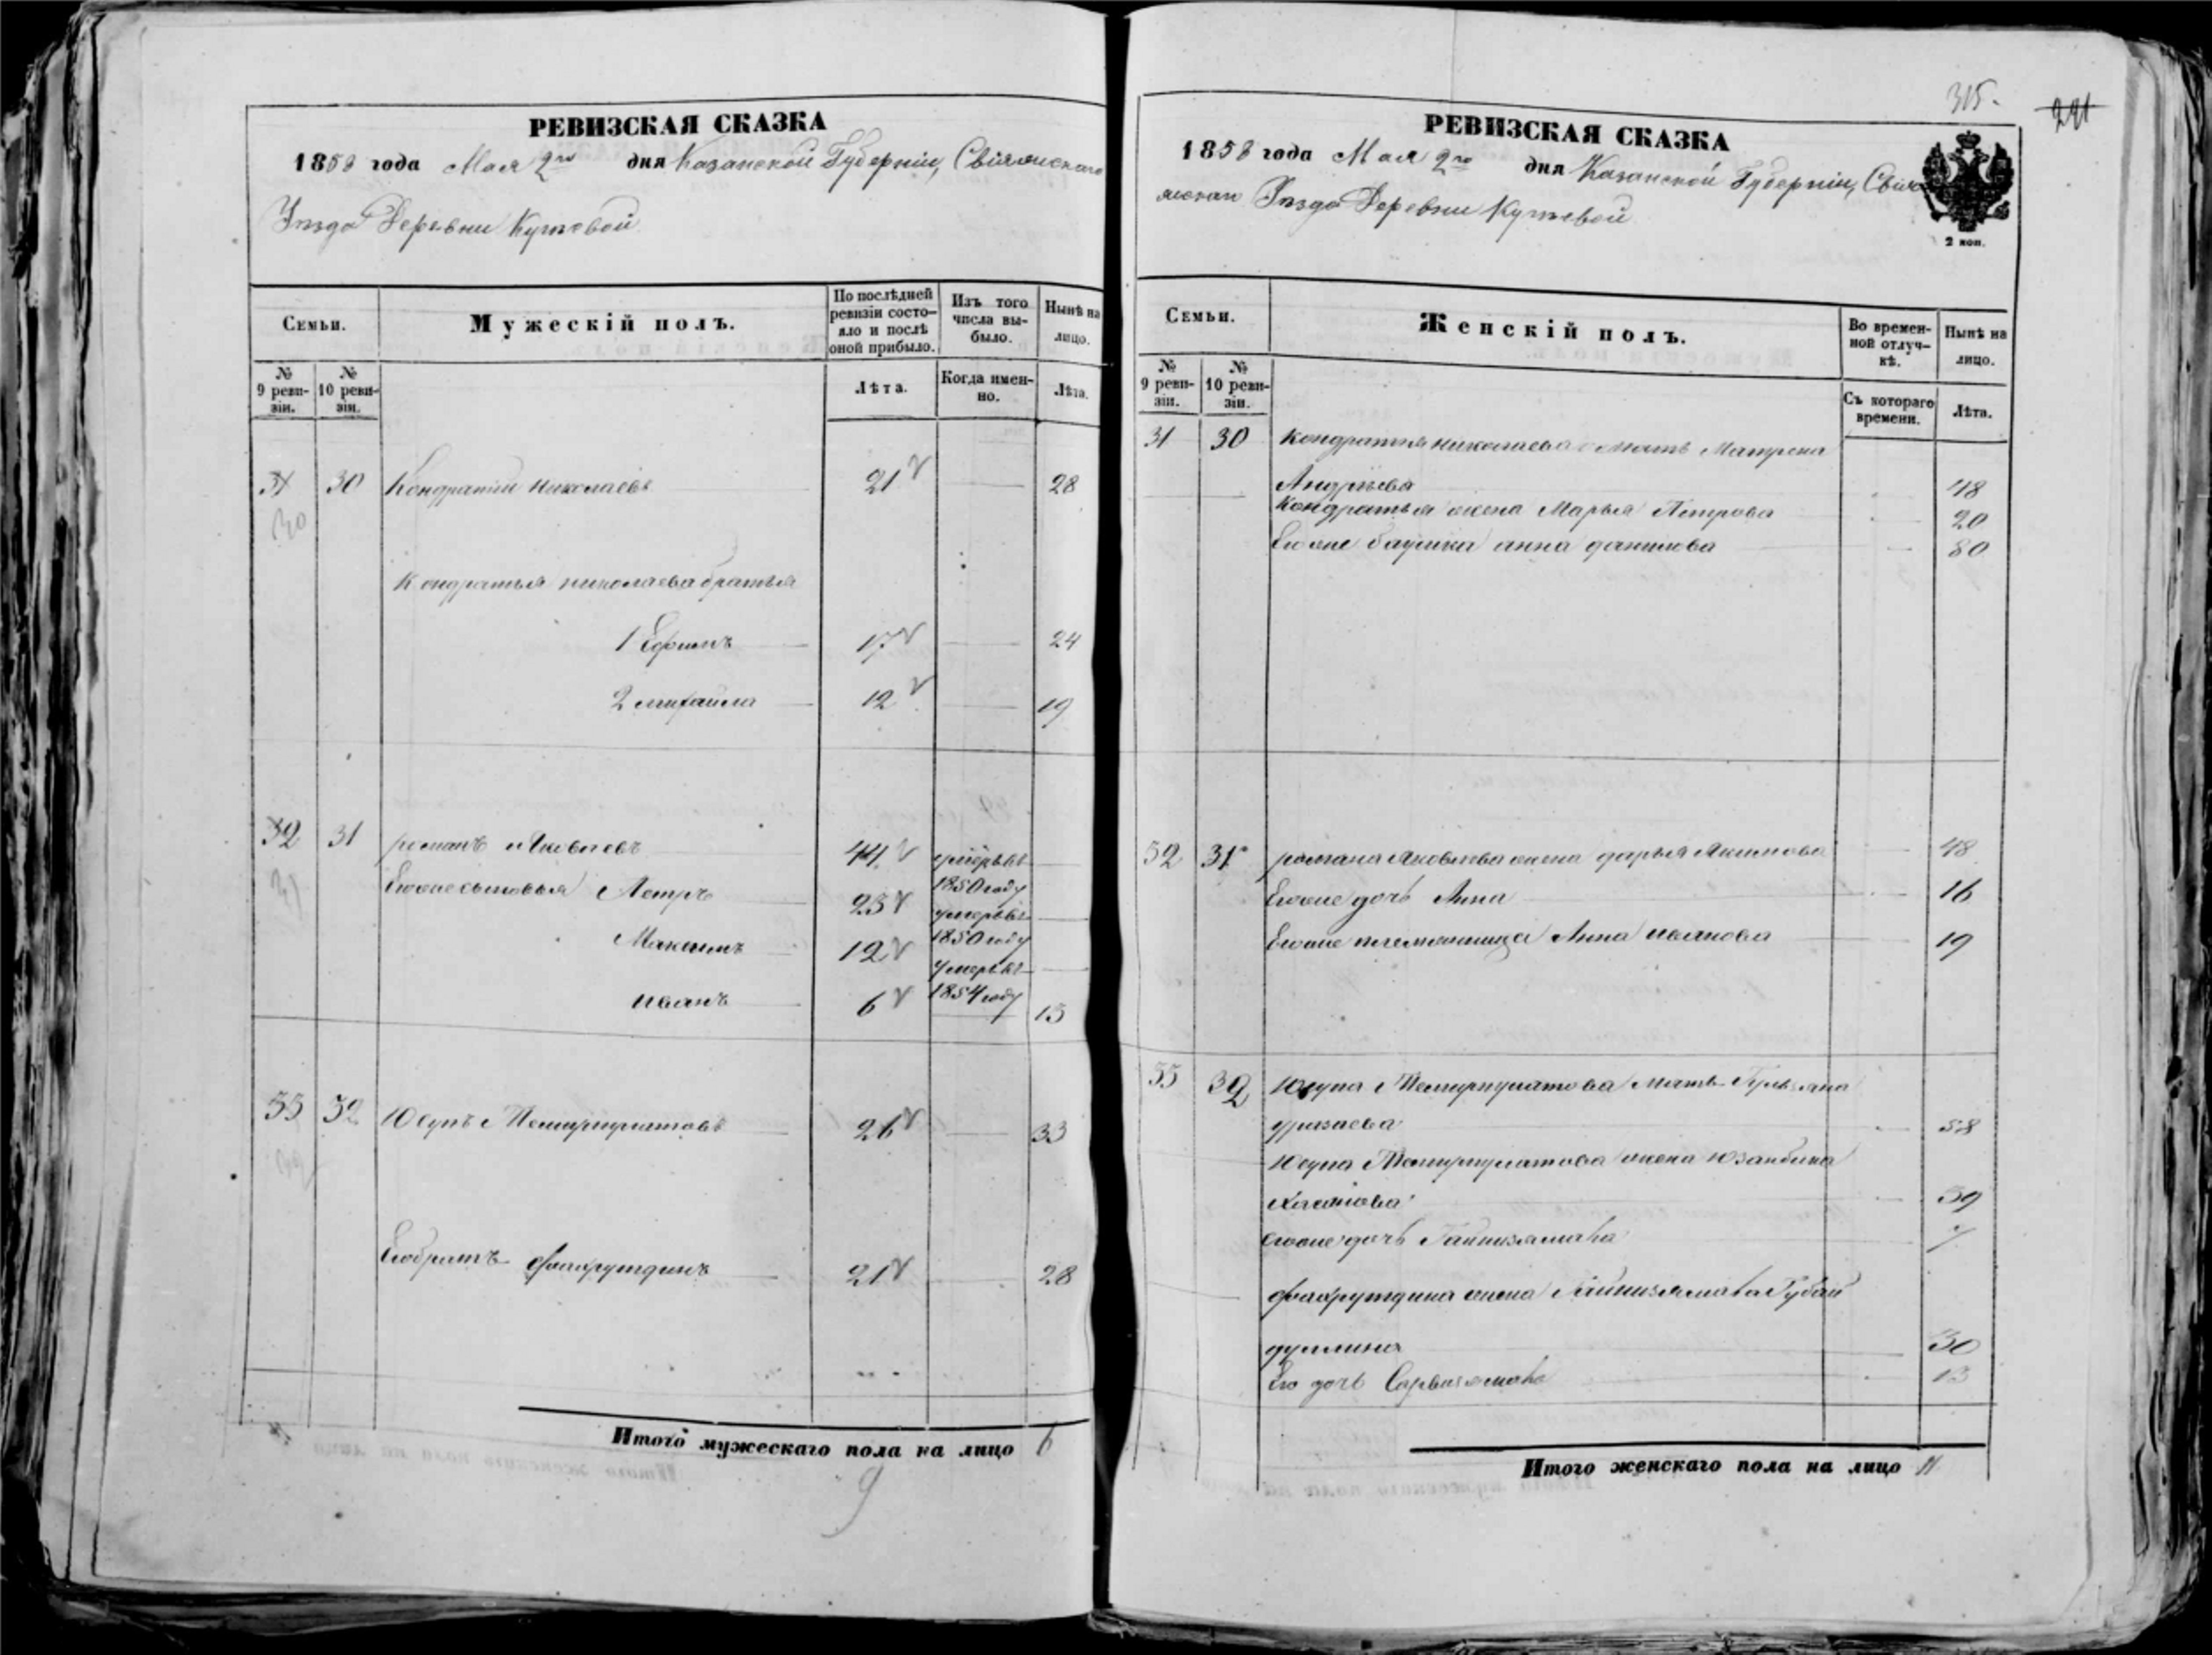 РЕВИЗСКАЯ СКАЗКА
1858 года Мая 2го дня Казанской Губерніи, Свіяжскаго
Уѣзда Деревни Кутеевой
Семьи.
Мужескій полъ.
По послѣдней ревизіи состояло и послѣ оной прибыло.
Изъ того числа выбыло.
Нынѣ на лицо.
№ 9 ревизіи.
№ 10 ревизіи.
Лѣта.
Когда именно.
Лѣта.
31 30 Кондратій Николаевъ 21 28
30
Кондратья николаева братья
1 Ефимъ 17 24
2 михайла 12 19
32 31 романъ Яковлевъ 44 умеръ въ 1850 году
31
Егоже сыновья Петръ 23 умеръ въ 1850 году
Максимъ 12 умеръ въ 1854 году
иванъ 6 13
33 32 Юсупъ Темирпулатовъ 26 33
32
Егобратъ фахрутдинъ 21 28
Итого мужескаго пола на лицо 6
9
315.
281
РЕВИЗСКАЯ СКАЗКА
1858 года Мая 2го дня Казанской Губерніи, Свія
жскаго Уѣзда Деревни Кутеевой
2 коп.
Семьи.
Женскій полъ.
Во временной отлучкѣ.
Нынѣ на лицо.
№ 9 ревизіи.
№ 10 ревизіи.
Съ котораго времени.
Лѣта.
31 30 Кондратья николаева мать Матрена
Андрѣева 48
Кондратья жена Марья Петрова 20
Егоже баушка анна данилова 80
32 31 романа Яковлева жена дарья Акимова 48
Егоже дочь Анна 16
Егоже племянница Анна иванова 19
33 32 Юсупа Темирпулатова мать
уразаева 58
Юсупа Темирпулатова жена
39
егоже дочь 7
фахрутдина жена Губай
дуллина 30
Его дочь 13
Итого женскаго пола на лицо 11